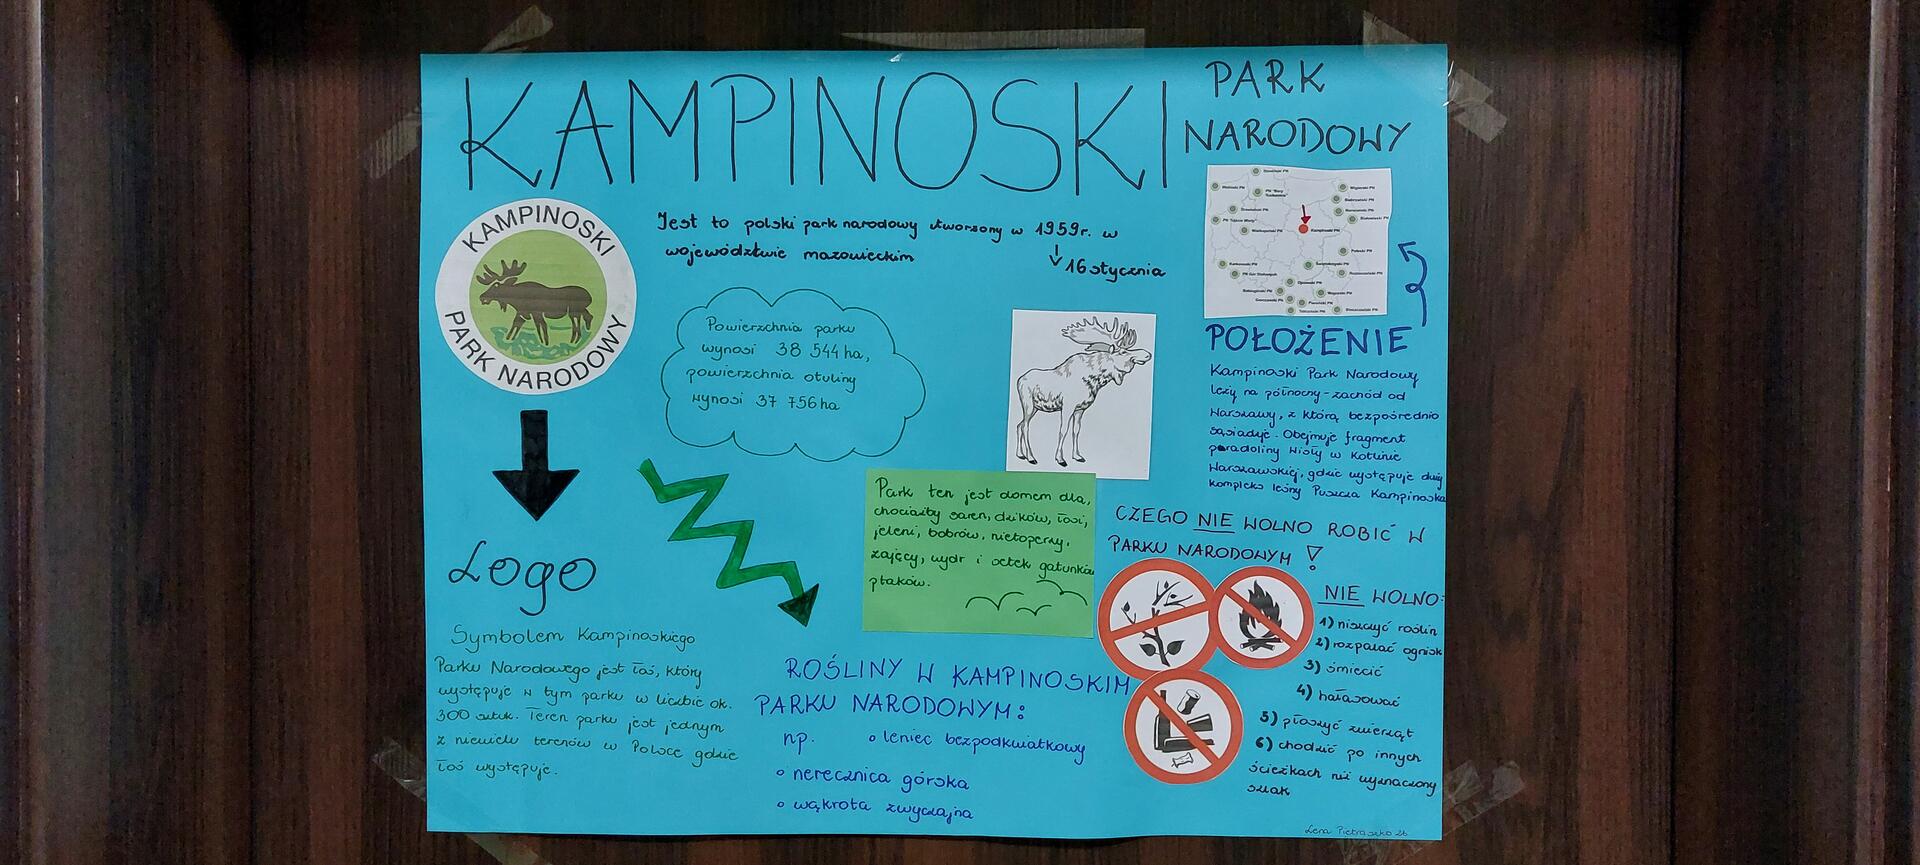 KAMPINOSKI
PARK
NARODOWY
KAMPINOSKI
PARK NARODOWY
Jest to polski park narodowy utworzony w 1959r. w
województwie mazowieckim
16 stycznia
Powierzchnia parku
wynosi 38 544 ha,
powierzchnia otuliny
wynosi 37 756 ha
Logo
Symbolem Kampinoskiego
Parku Narodowego jest łoś, który
występuje w tym parku w liczbie ok.
300 sztuk. Teren parku jest jednym
z niewielu terenów w Polsce gdzie
łoś występuje.
Park ten jest domem dla,
chociażby saren, dzików, łosi,
jeleni, bobrów, nietoperzy,
zajęcy, wydr i setek gatunków
ptaków.
ROŚLINY W KAMPINOSKIM
PARKU NARODOWYM:
np.
• leniec bezpodkwiatkowy
• nerecznica górska
• wąkrota zwyczajna
POŁOŻENIE
Kampinoski Park Narodowy
leży na północny-zachód od
Warszawy, z którą bezpośrednio
sąsiaduje. Obejmuje fragment
pradoliny Wisły w Kotlinie
Warszawskiej, gdzie występuje duży
kompleks leśny Puszcza Kampinoska
CZEGO NIE WOLNO ROBIĆ W
PARKU NARODOWYM !
NIE WOLNO:
1) niszczyć roślin
2) rozpalać ognisk
3) śmiecić
4) hałasować
5) płoszyć zwierząt
6) chodzić po innych
ścieżkach niż wyznaczony
szlak
Lena Pietraszko 2b